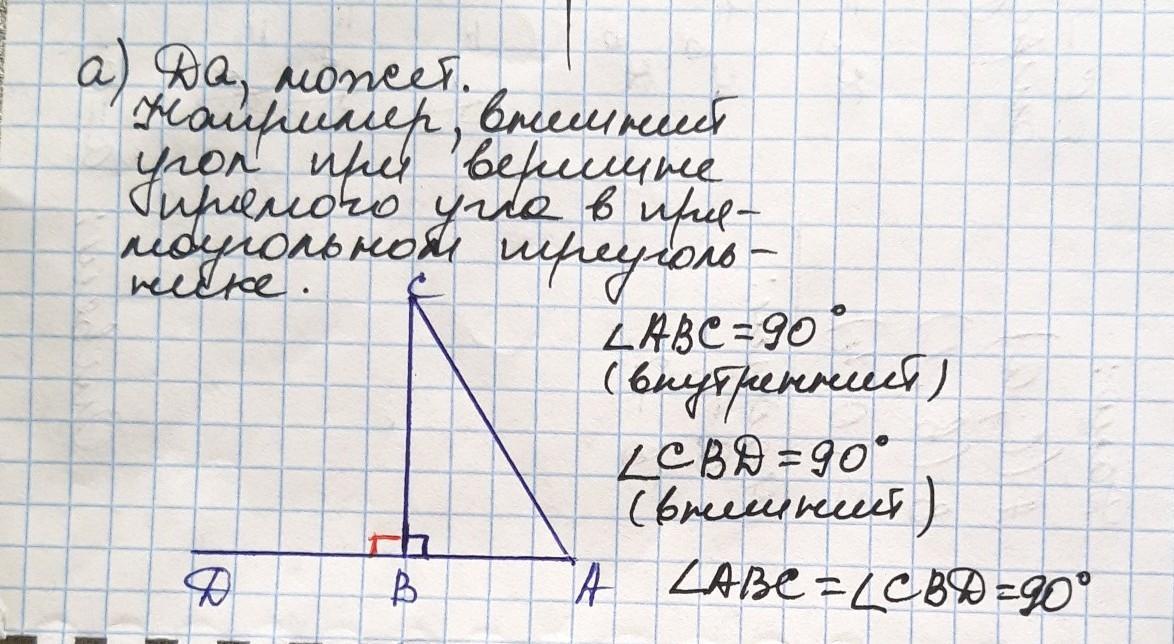 а) Да, может.
Например, внешний
угол при вершине
прямого угла в пря-
моугольном треуголь-
нике.
C
∠ABC = 90°
(внутренний)
∠CBD = 90°
(внешний)
D B A ∠ABC = ∠CBD = 90°